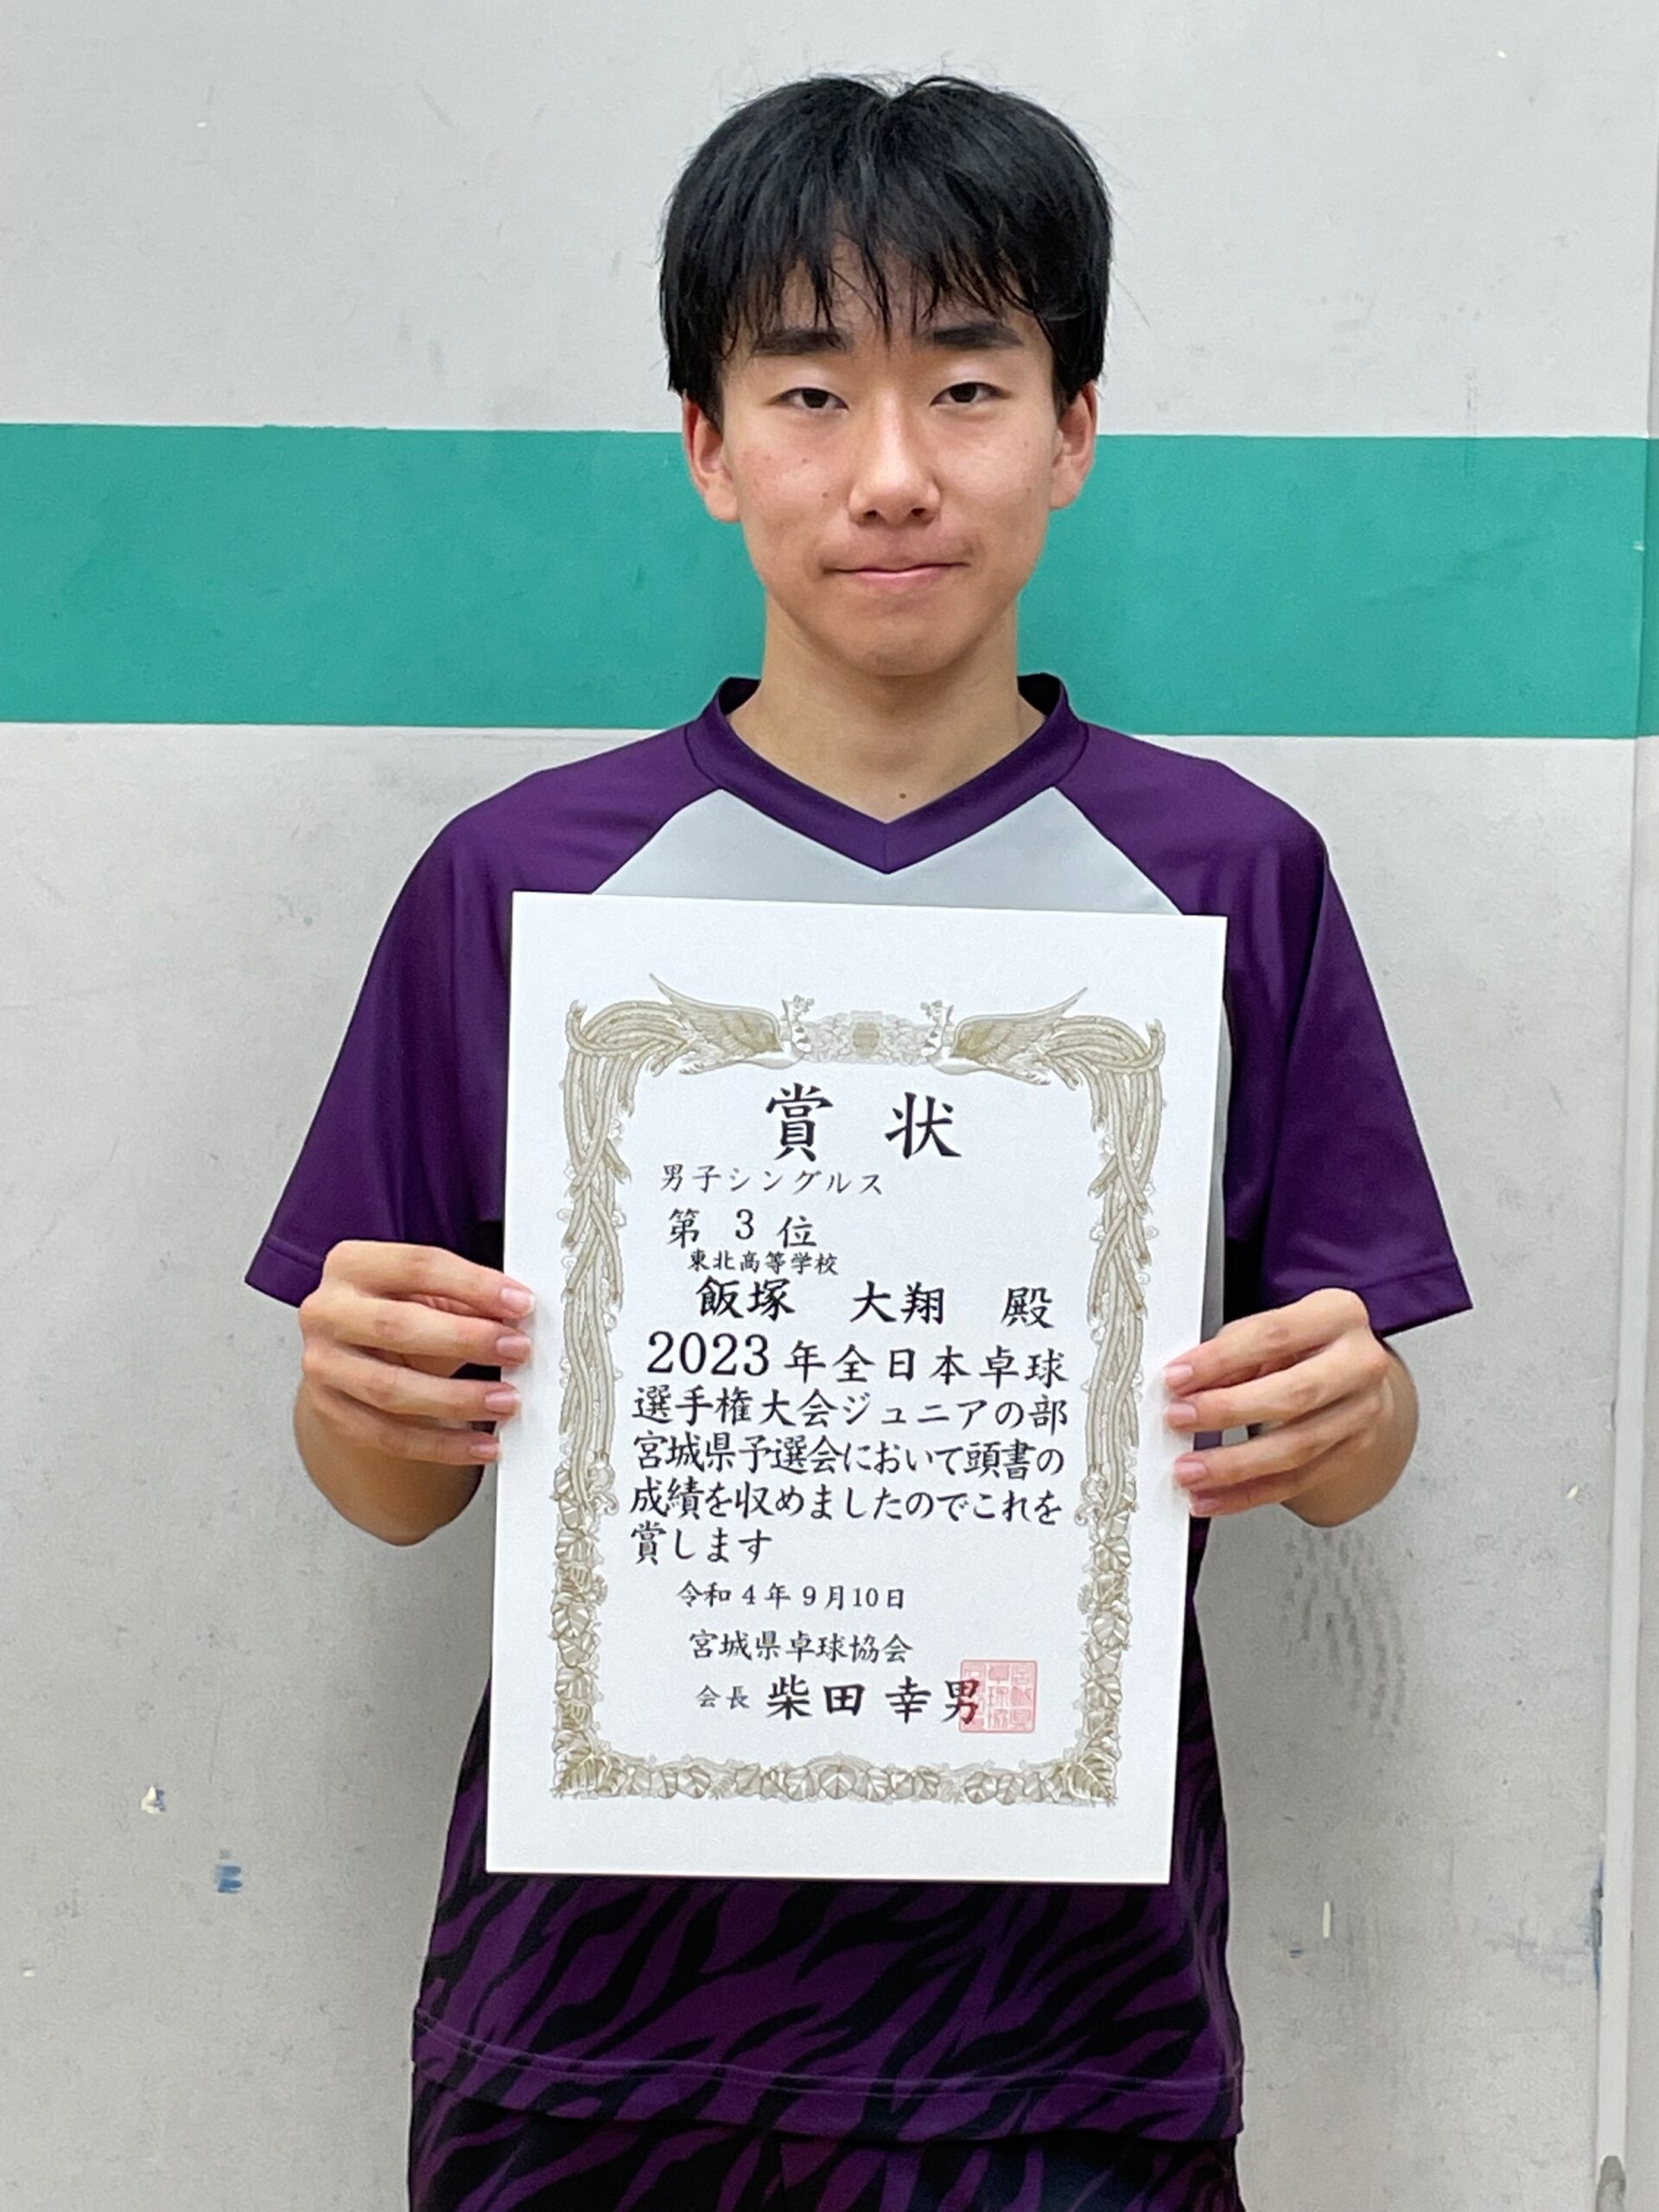 賞状
男子シングルス
第3位
東北高等学校
飯塚 大翔 殿
2023年全日本卓球
選手権大会ジュニアの部
宮城県予選会において頭書の
成績を収めましたのでこれを
賞します
令和4年9月10日
宮城県卓球協会
会長 柴田幸男